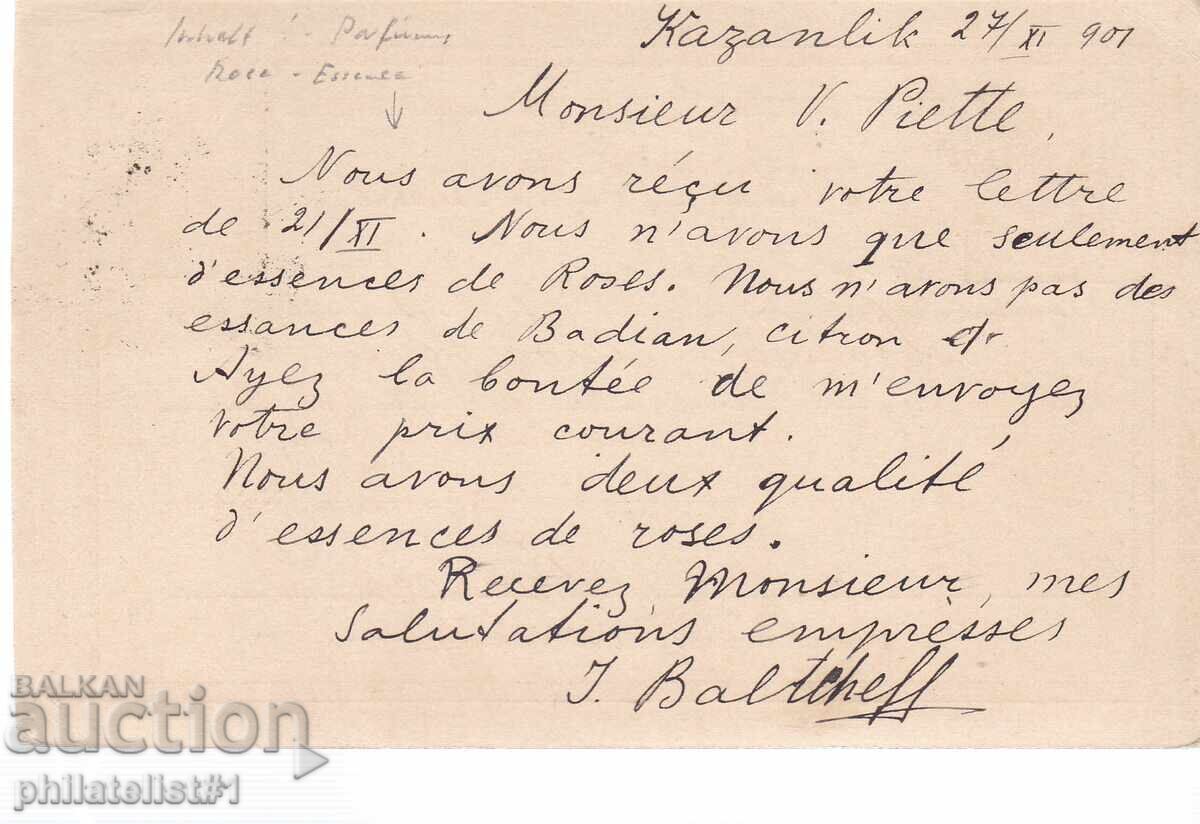 Inhalt - Parfum,
Rose - Essence
Kazanlik 27/XI 901
Monsieur V. Piette,
Nous avons réçu votre lettre
de 21/XI. Nous n'avons que seulement
d'essences de Roses. Nous n'avons pas des
essances de Badian, citron
Ayez la bontée de m'envoyez
votre prix courant.
Nous avons deux qualité
d'essences de roses.
Recevez Monsieur, mes
salutations empressès
J. Baltcheff
BALKAN
auction
philatelist#1